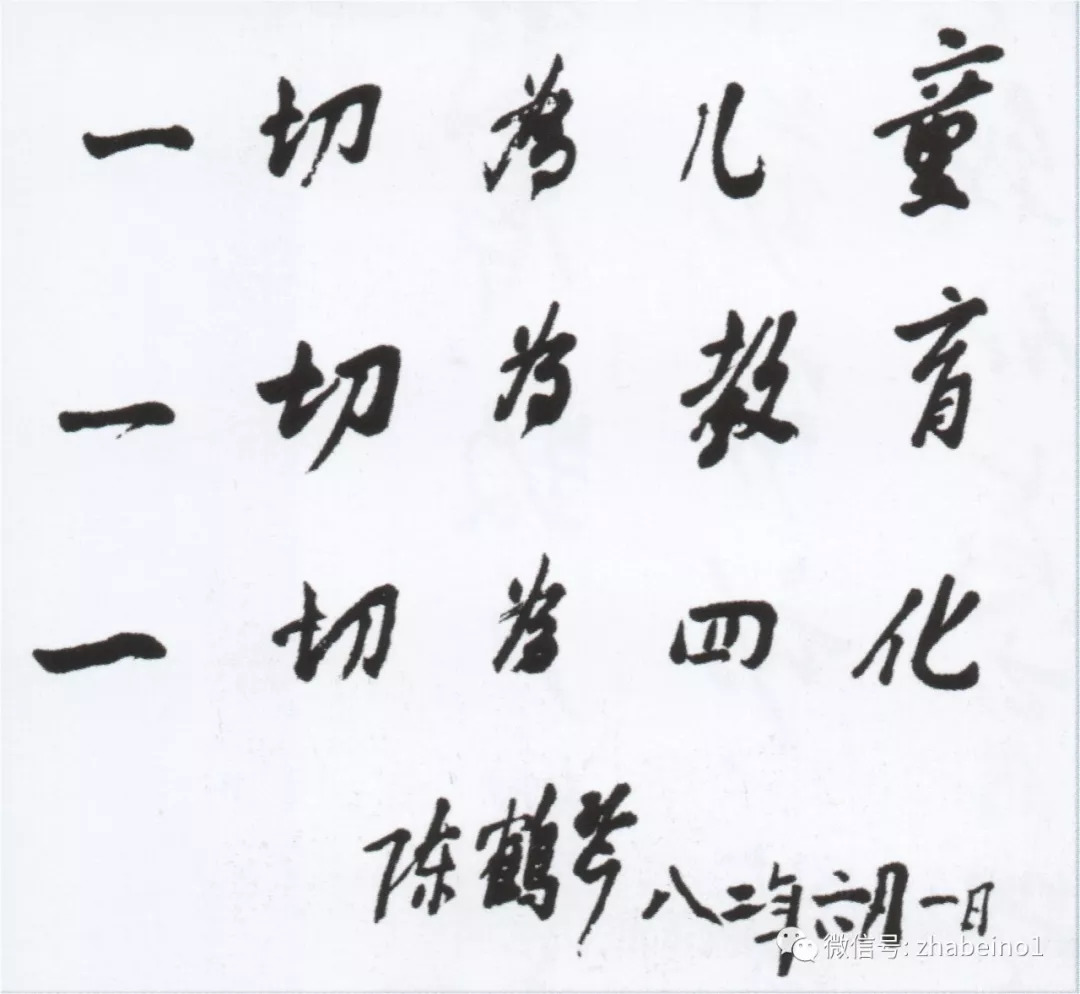 一切為儿童
一切为教育
一切为四化
陈鹤琴 八二年六月一日
微信号: zhabeino1